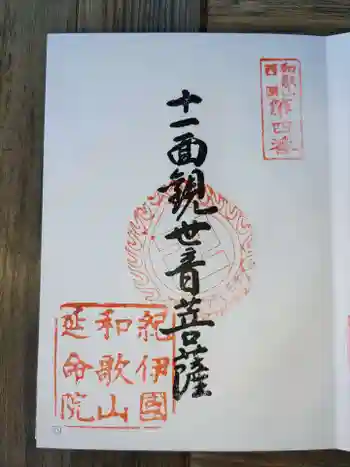 和歌山
西国
第四番
十一面観世音菩薩
紀伊国
和歌山
延命院